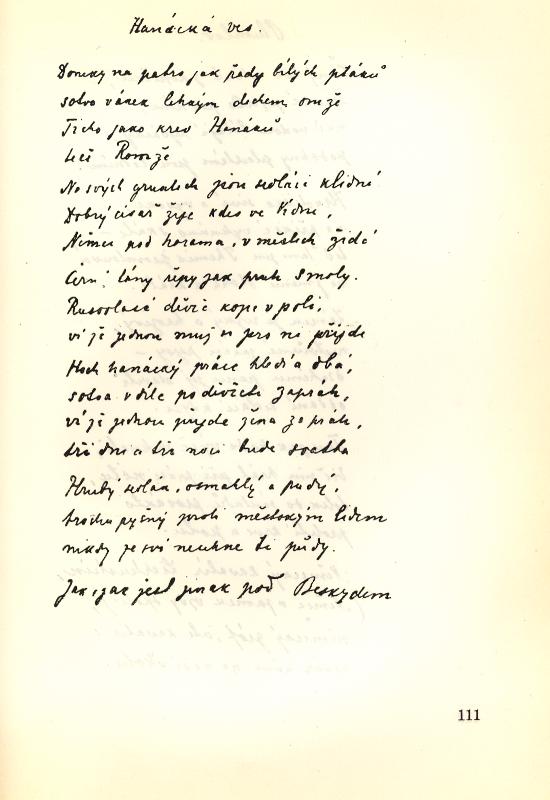 Hanácká ves.
Domky na patro jak řady bílých ptáků
sotva vánek lehkým dechem
Ticho jako krev Hanáků
teče Romže
Na svých gruntech jsou sedláci klidní
Dobrý císař žije kdes ve Vídni,
Němci pod horama, v městech židé
Černé lány řepy jak pruh smoly.
Rusovlasé děvče kope v poli,
ví že jednou muž si pro ni přijde
Hoch hanácký práce hledí a dbá,
sotva v díle po děvčeti zapráh,
ví že jednou přijde žena za práh,
tři dni a tři noci bude svatba
Hrubý sedlák, osmahlý a
trochu pyšný proti městským lidem
nikdy ze své neuhne ti půdy.
Jak, jak jest jinak pod Beskydem
111